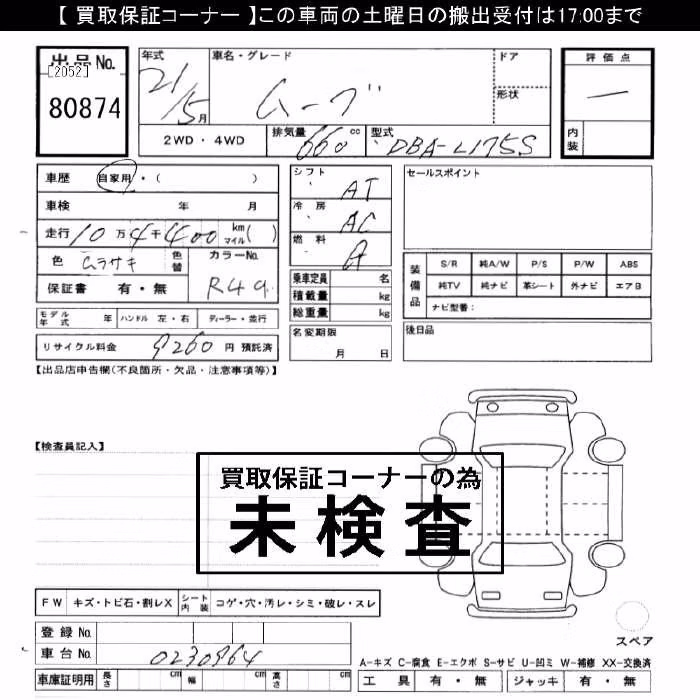 【 買取保証コーナー 】この車両の土曜日の搬出受付は17:00まで
出品No.
[2052]
80874
年式 21/5月
車名・グレード ムーブ
ドア
形状
評価点 一
内装
2WD・4WD
排気量 660 cc
型式 DBA-L175S
車歴 自家用・( )
車検 年 月
走行 10万4千400 km マイル ( )
色 ムラサキ 色替
カラーNo. R49
保証書 有・無
シフト AT
冷房 AC
燃料 A
乗車定員 名
積載量 kg
総重量 kg
セールスポイント
装備品
S/R 純A/W P/S P/W ABS
純TV 純ナビ 革シート 外ナビ エアB
ナビ型番:
モデル年式 年 ハンドル 左・右 ディーラー・並行
名変期限 月 日
後日品
リサイクル料金 9260 円 預託済
【出品店申告欄(不良箇所・欠品・注意事項等)】
【検査員記入】
買取保証コーナーの為
未検査
FW キズ・トビ石・割レX シート内装 コゲ・穴・汚レ・シミ・破レ・スレ
登録No.
車台No. 0230964
車庫証明用 長さ cm 幅 cm 高さ cm
スペア
A-キズ C-腐食 E-エクボ S-サビ U-凹ミ W-補修 XX-交換済
工具 有・無 ジャッキ 有・無